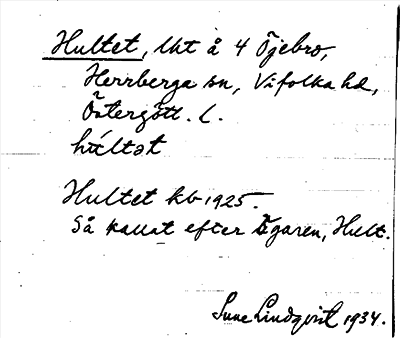 Hultet, lht å 4 Öjebro,
Herrberga sn, Vifolka hd,
Östergötl. l.
húltət
Hultet kb 1925.
Så kallat efter ägaren, Hult.
Sune Lindqvist 1934.